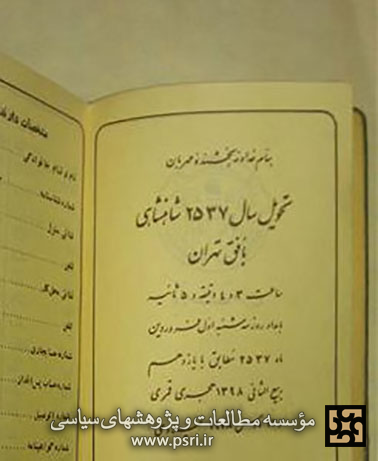 بنام خداوند بخشنده و مهربان
تحویل سال ۲۵۳۷ شاهنشاهی
بافق تهران
ساعت ۳ و ۴ دقیقه و ۵ ثانیه
بامداد روز سه شنبه اول فروردین
ماه ۲۵۳۷ مطابق با یازدهم
ربیع الثانی ۱۳۹۸ هجری قمری
مشخصات
نام و نام خانوادگی
شماره شناسنامه
نشانی منزل
تلفن
نشانی محل کار
تلفن
شماره حساب جاری
شماره حساب پس انداز
شماره اتومبیل
شماره گواهینامه
مؤسسه مطالعات و پژوهشهای سیاسی
www.psri.ir